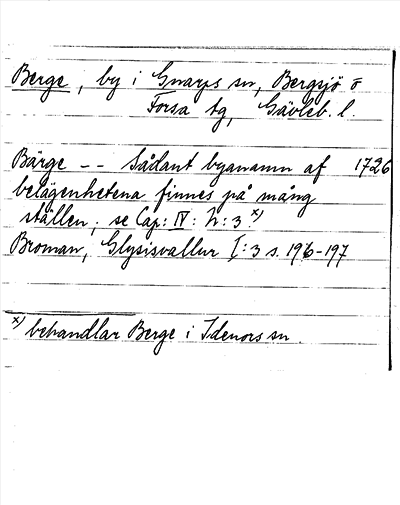 Berge, by i Gnarps sn, Bergsjö o
Forsa tg, Gävleb. l.
Bärge -- Sådant byanamn af 1726
belägenhetena finnes på mång
ställen; se Cap: IV: N: 3 x)
Broman, Glysisvallur I: 3 s. 196-197
x) behandlar Berge i Idenors sn.